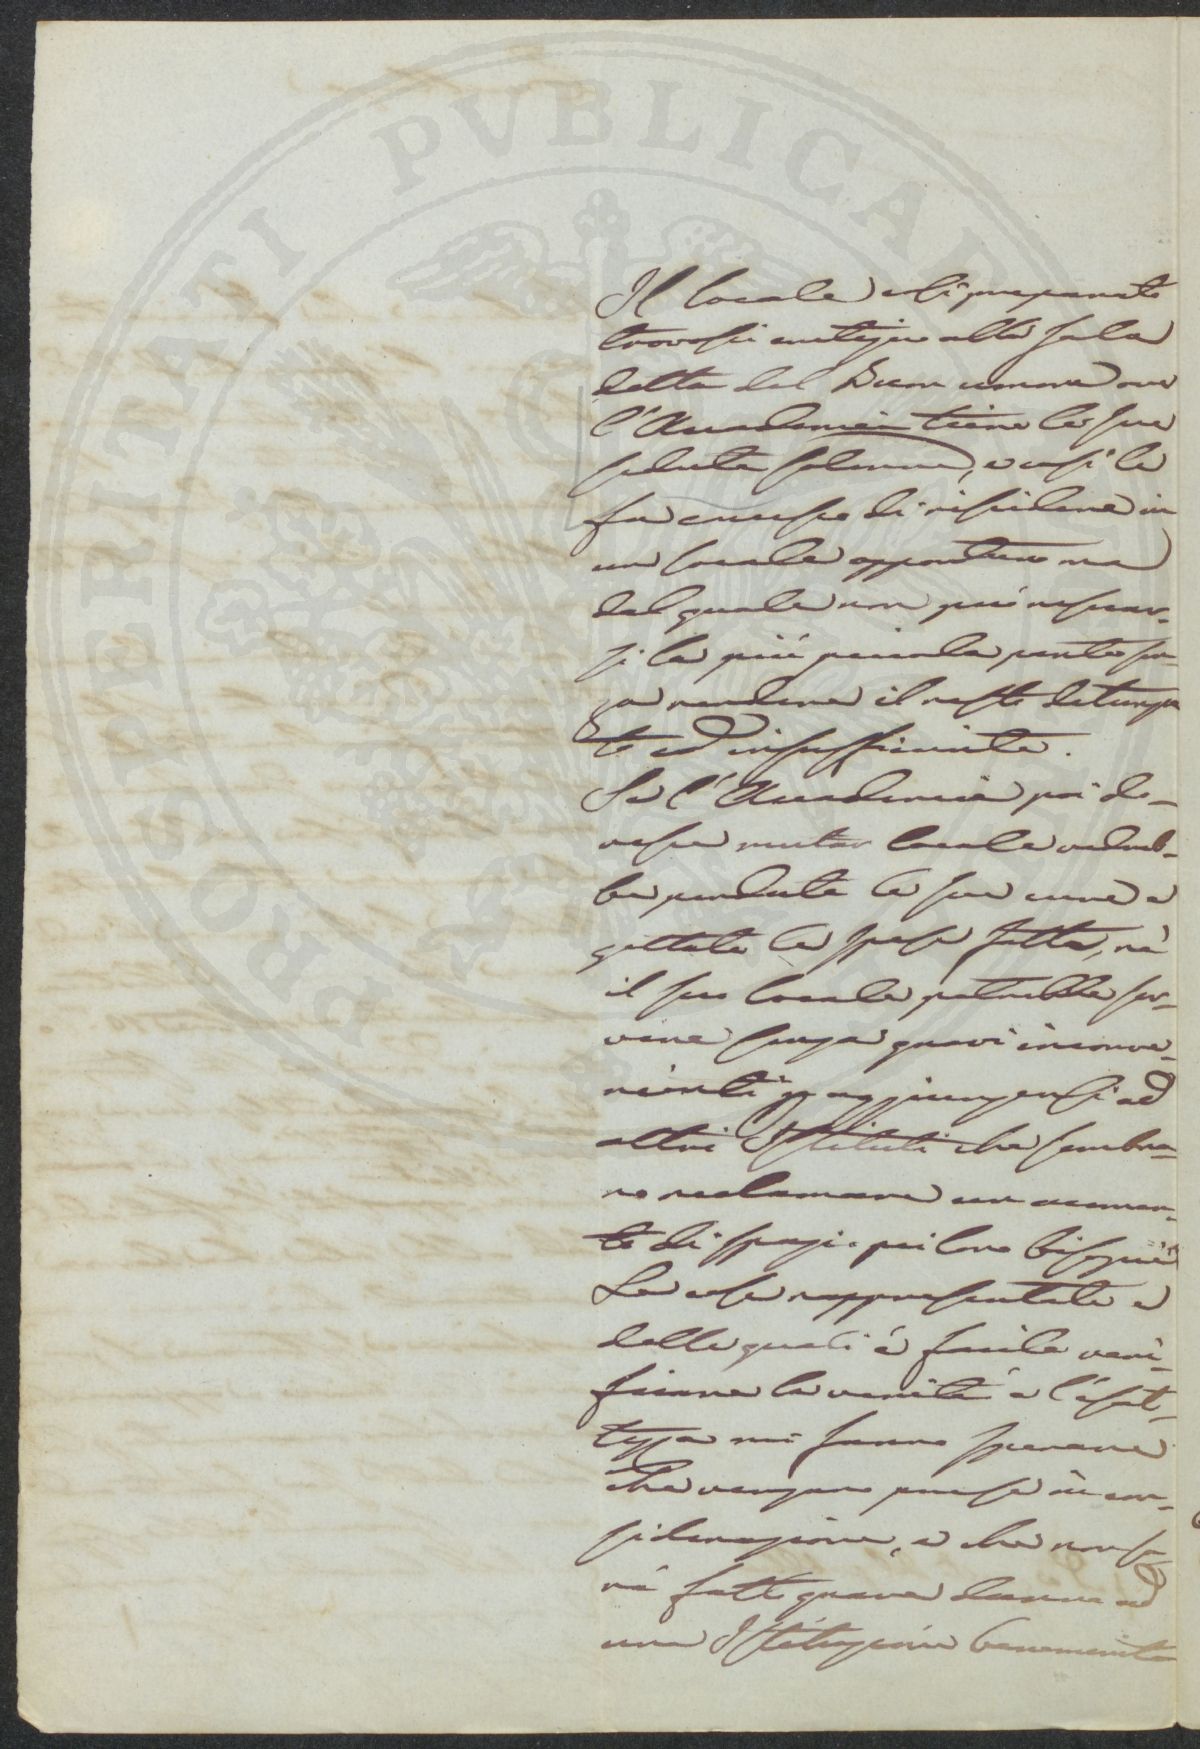 PROSPERITATI PVBLICAE
Il locale cosi preparato
trovasi contiguo alla Sala
detta del Buon umore ove
l'Accademia tiene le sue
sedute solenni, e così la
fa essere di residenza in
un locale opportuno ma
dal quale non può resecar-
si la più piccola parte sen-
za rendere il resto deturpa
to ed insufficiente.
Se l'Accademia poi do-
vesse mutar locale vedreb-
be perdute le sue cure e
gettate le spese fatte, nè
il suo locale potrebbe ser-
vire senza gravi inconve-
nienti per aggiungersi ad
altri Istituti che sembra-
no reclamare un aumen-
to di spazio pei loro bisogni
Le cose rappresentate e
delle quali è facile veri-
ficare la verità e l'esat-
tezza mi fanno sperare
che vengano prese in con-
siderazione, e che non sa
rà fatto grave danno ad
una Istituzione benemerita